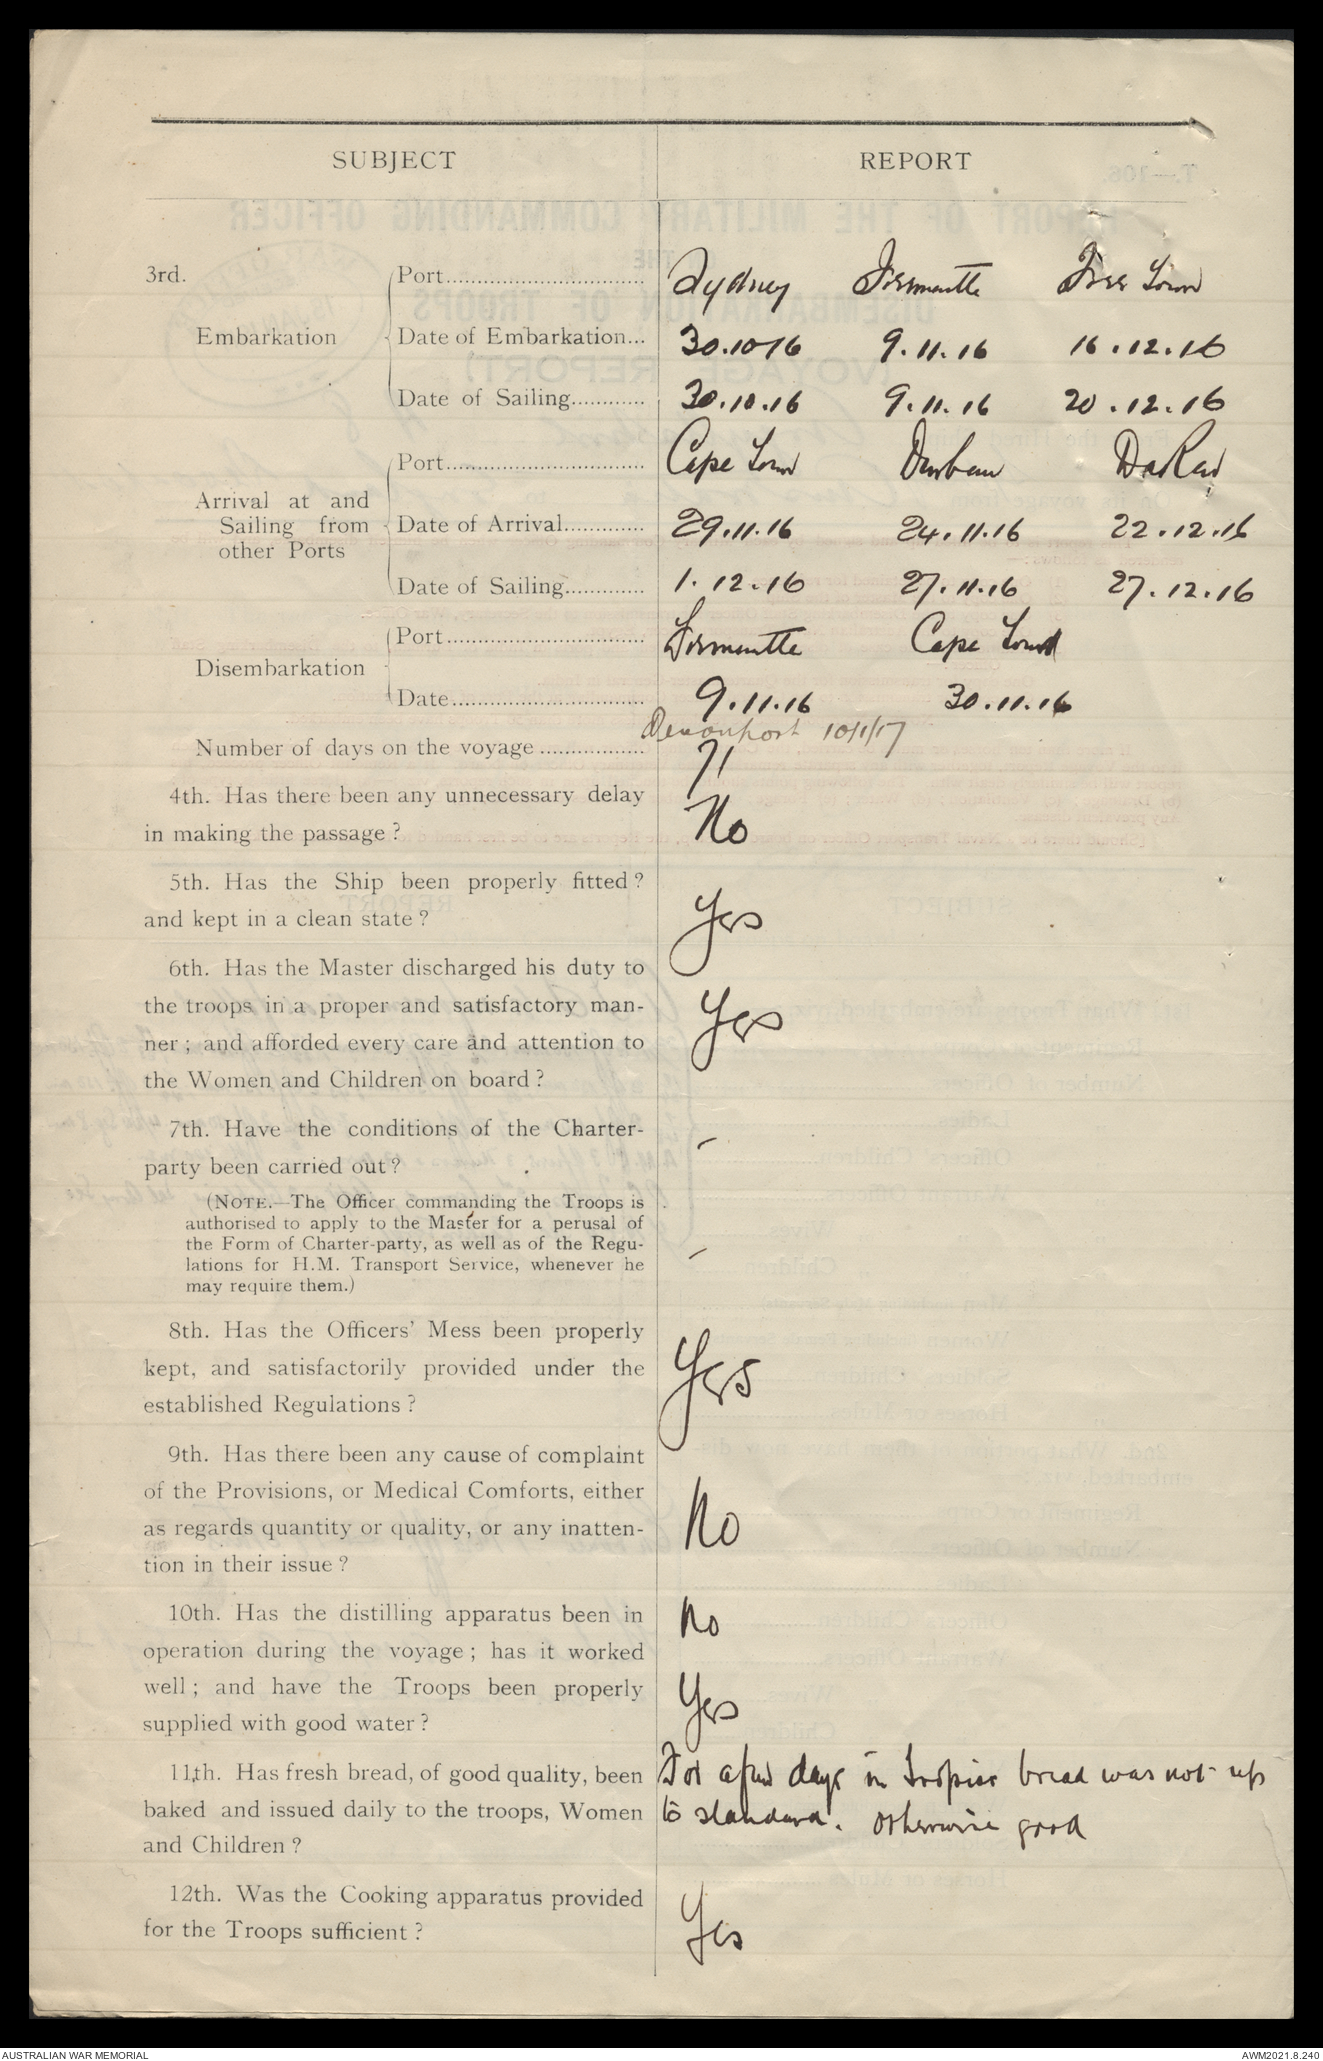 SUBJECT REPORT
3rd.
Embarkation
Port.............................. Sydney Fremantle Free Town
Date of Embarkation... 30.10.16 9.11.16 16.12.16
Date of Sailing............ 30.10.16 9.11.16 20.12.16
Arrival at and
Sailing from
other Ports
Port.............................. Cape Town Durban DaKar
Date of Arrival............. 29.11.16 24.11.16 22.12.16
Date of Sailing............. 1.12.16 27.11.16 27.12.16
Disembarkation
Port.............................. Fremantle Cape Town
Date.............................. 9.11.16 30.11.16
Devonport 10/1/17
Number of days on the voyage ................. 71
4th. Has there been any unnecessary delay
in making the passage ? No
5th. Has the Ship been properly fitted ?
and kept in a clean state ? Yes
6th. Has the Master discharged his duty to
the troops in a proper and satisfactory man-
ner ; and afforded every care and attention to
the Women and Children on board ? Yes
7th. Have the conditions of the Charter-
party been carried out ? -
(NOTE.—The Officer commanding the Troops is
authorised to apply to the Master for a perusal of
the Form of Charter-party, as well as of the Regu-
lations for H.M. Transport Service, whenever he
may require them.) -
8th. Has the Officers' Mess been properly
kept, and satisfactorily provided under the
established Regulations ? Yes
9th. Has there been any cause of complaint
of the Provisions, or Medical Comforts, either
as regards quantity or quality, or any inatten-
tion in their issue ? No
10th. Has the distilling apparatus been in
operation during the voyage ; has it worked
well ; and have the Troops been properly
supplied with good water ? No Yes
11th. Has fresh bread, of good quality, been For a few days in Tropics bread was not up
baked and issued daily to the troops, Women to standard. otherwise good
and Children ?
12th. Was the Cooking apparatus provided
for the Troops sufficient ? Yes
AUSTRALIAN WAR MEMORIAL AWM2021.8.240